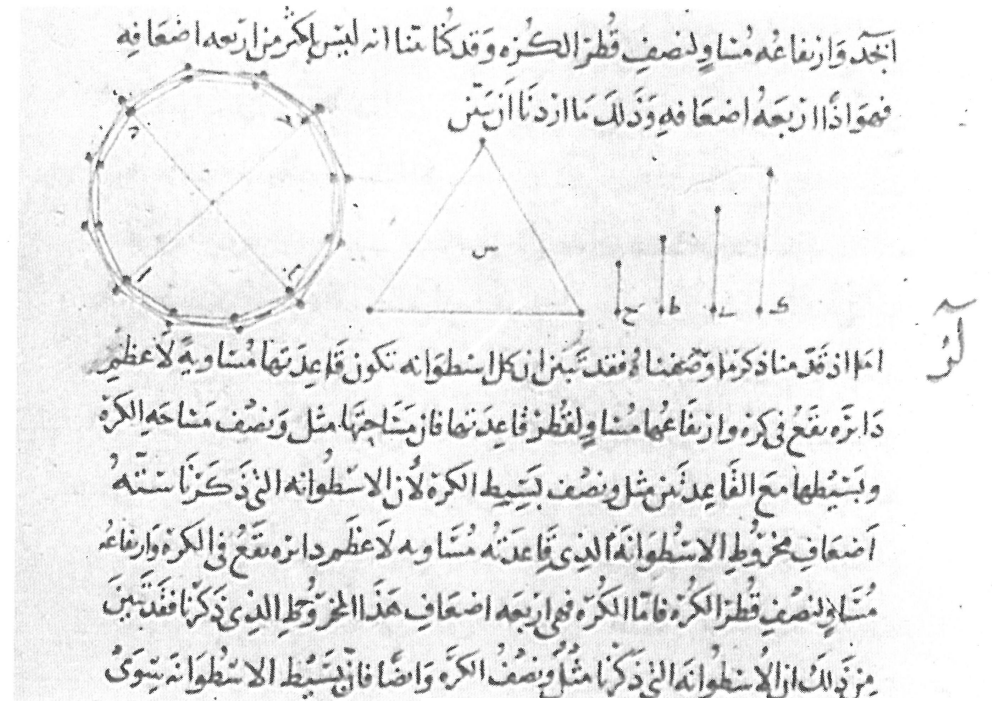 وارتفاعه مساو لنصف قطر الكره وقد كنا بينا انه ليس اكثر من اربعه اضعافه
فهو اذًا اربعة اضعافه وذلك ما اردنا ان نبين
س
ح ط ك
اما اذ قدمنا ذكر ما وصفناه فقد تبين ان كل اسطوانه تكون قاعدتها مساوية لاعظم
دائرة تقع في كرة وارتفاعها مساو لقطر قاعدتها فان مساحتها مثل ونصف مساحه الكرة
وبسيطها مع القاعدتين مثل ونصف بسيط الكرة لان الاسطوانه التي ذكرنا ستة
اضعاف مخروط الاسطوانة الذي قاعدته مساويه لاعظم دايره تقع في الكرة وارتفاعه
مساو لنصف قطر الكره فاما الكره فهي اربعه اضعاف هذا المخروط الذي ذكرنا فقد تبين
من ذلك ان الاسطوانه التي ذكرنا مثل ونصف الكرة وايضا فان بسيط الاسطوانة سوى